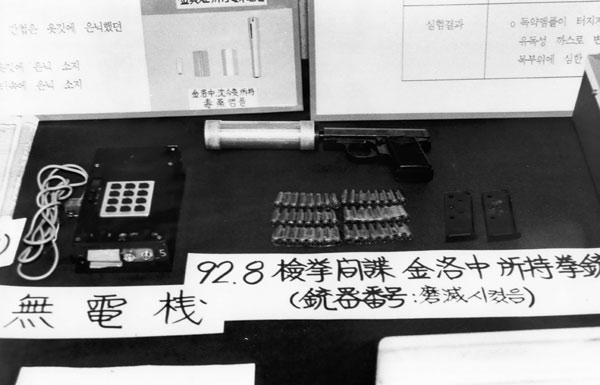 간첩은 옷깃에 은닉했던
소지
소지
金洛中, 沈今燮 所持
毒藥앰플
실험결과
ㅇ 독약앰풀이 터지자
유독성 까스로 변
목부위에 심한
92.8 検挙间諜 金洛中 所持拳銃
(銃器番号: 磨滅시켰음)
無電棧